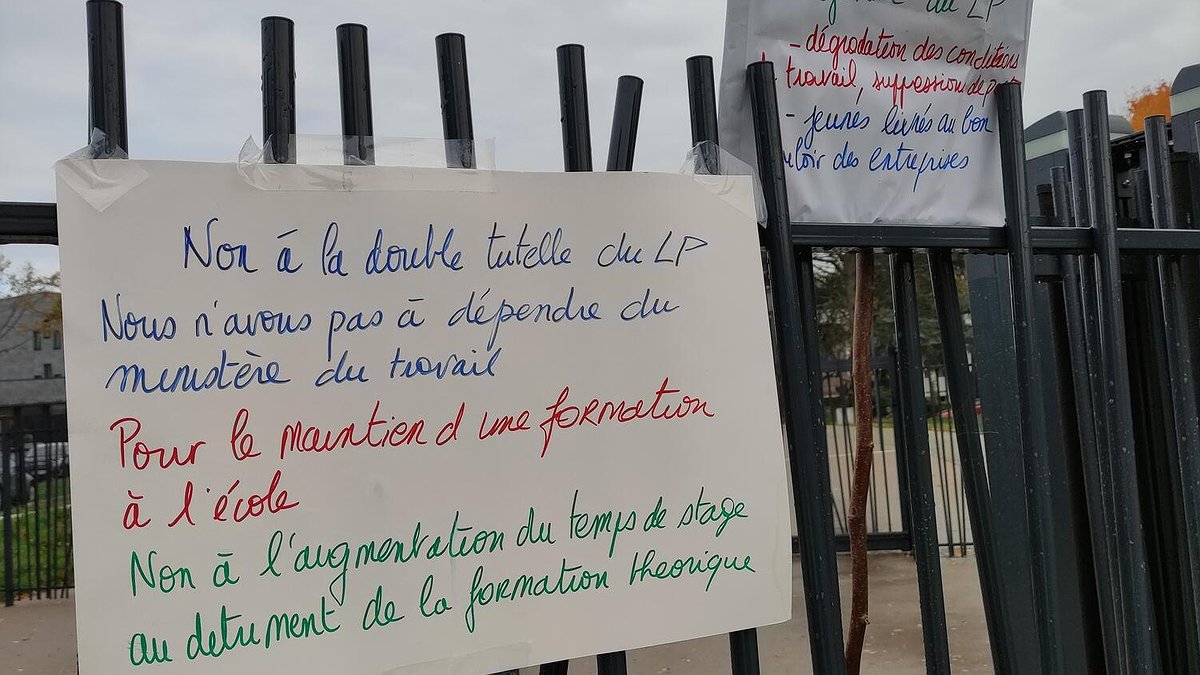 Non à la double tutelle du LP
Nous n'avons pas à dépendre du
ministère du travail
Pour le maintien d une formation
à l'école
Non à l'augmentation du temps de stage
au detriment de la formation theorique
du LP
- dégradation des conditions
travail, suppression de
- jeunes livrés au bon
des entreprises